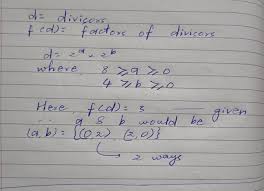 d = divicors
f(d) = factors of divicors
d = 2ᵃ · 2ᵇ
where, 8 ⩾ a ⩾ 0
4 ⩾ b ⩾ 0
Here, f(d) = 3 given
∴ a & b would be
(a, b) = {(0, 2), (2, 0)}
2 ways